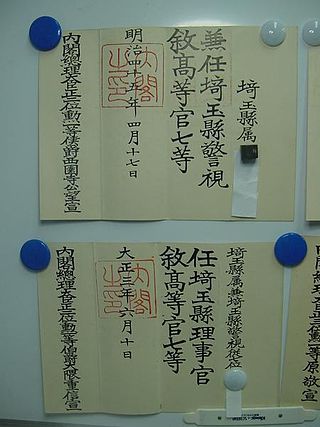 埼玉縣属
兼任埼玉縣警視
敘高等官七等
明治四十五年四月十七日
內閣之印
內閣總理大臣正二位勲一等侯爵西園寺公望宣
埼玉縣属兼埼玉縣警視從七位
任埼玉縣理事官
敘高等官七等
大正三年六月十日
內閣之印
內閣總理大臣正二位勲一等伯爵大隈重信宣
等原敬宣